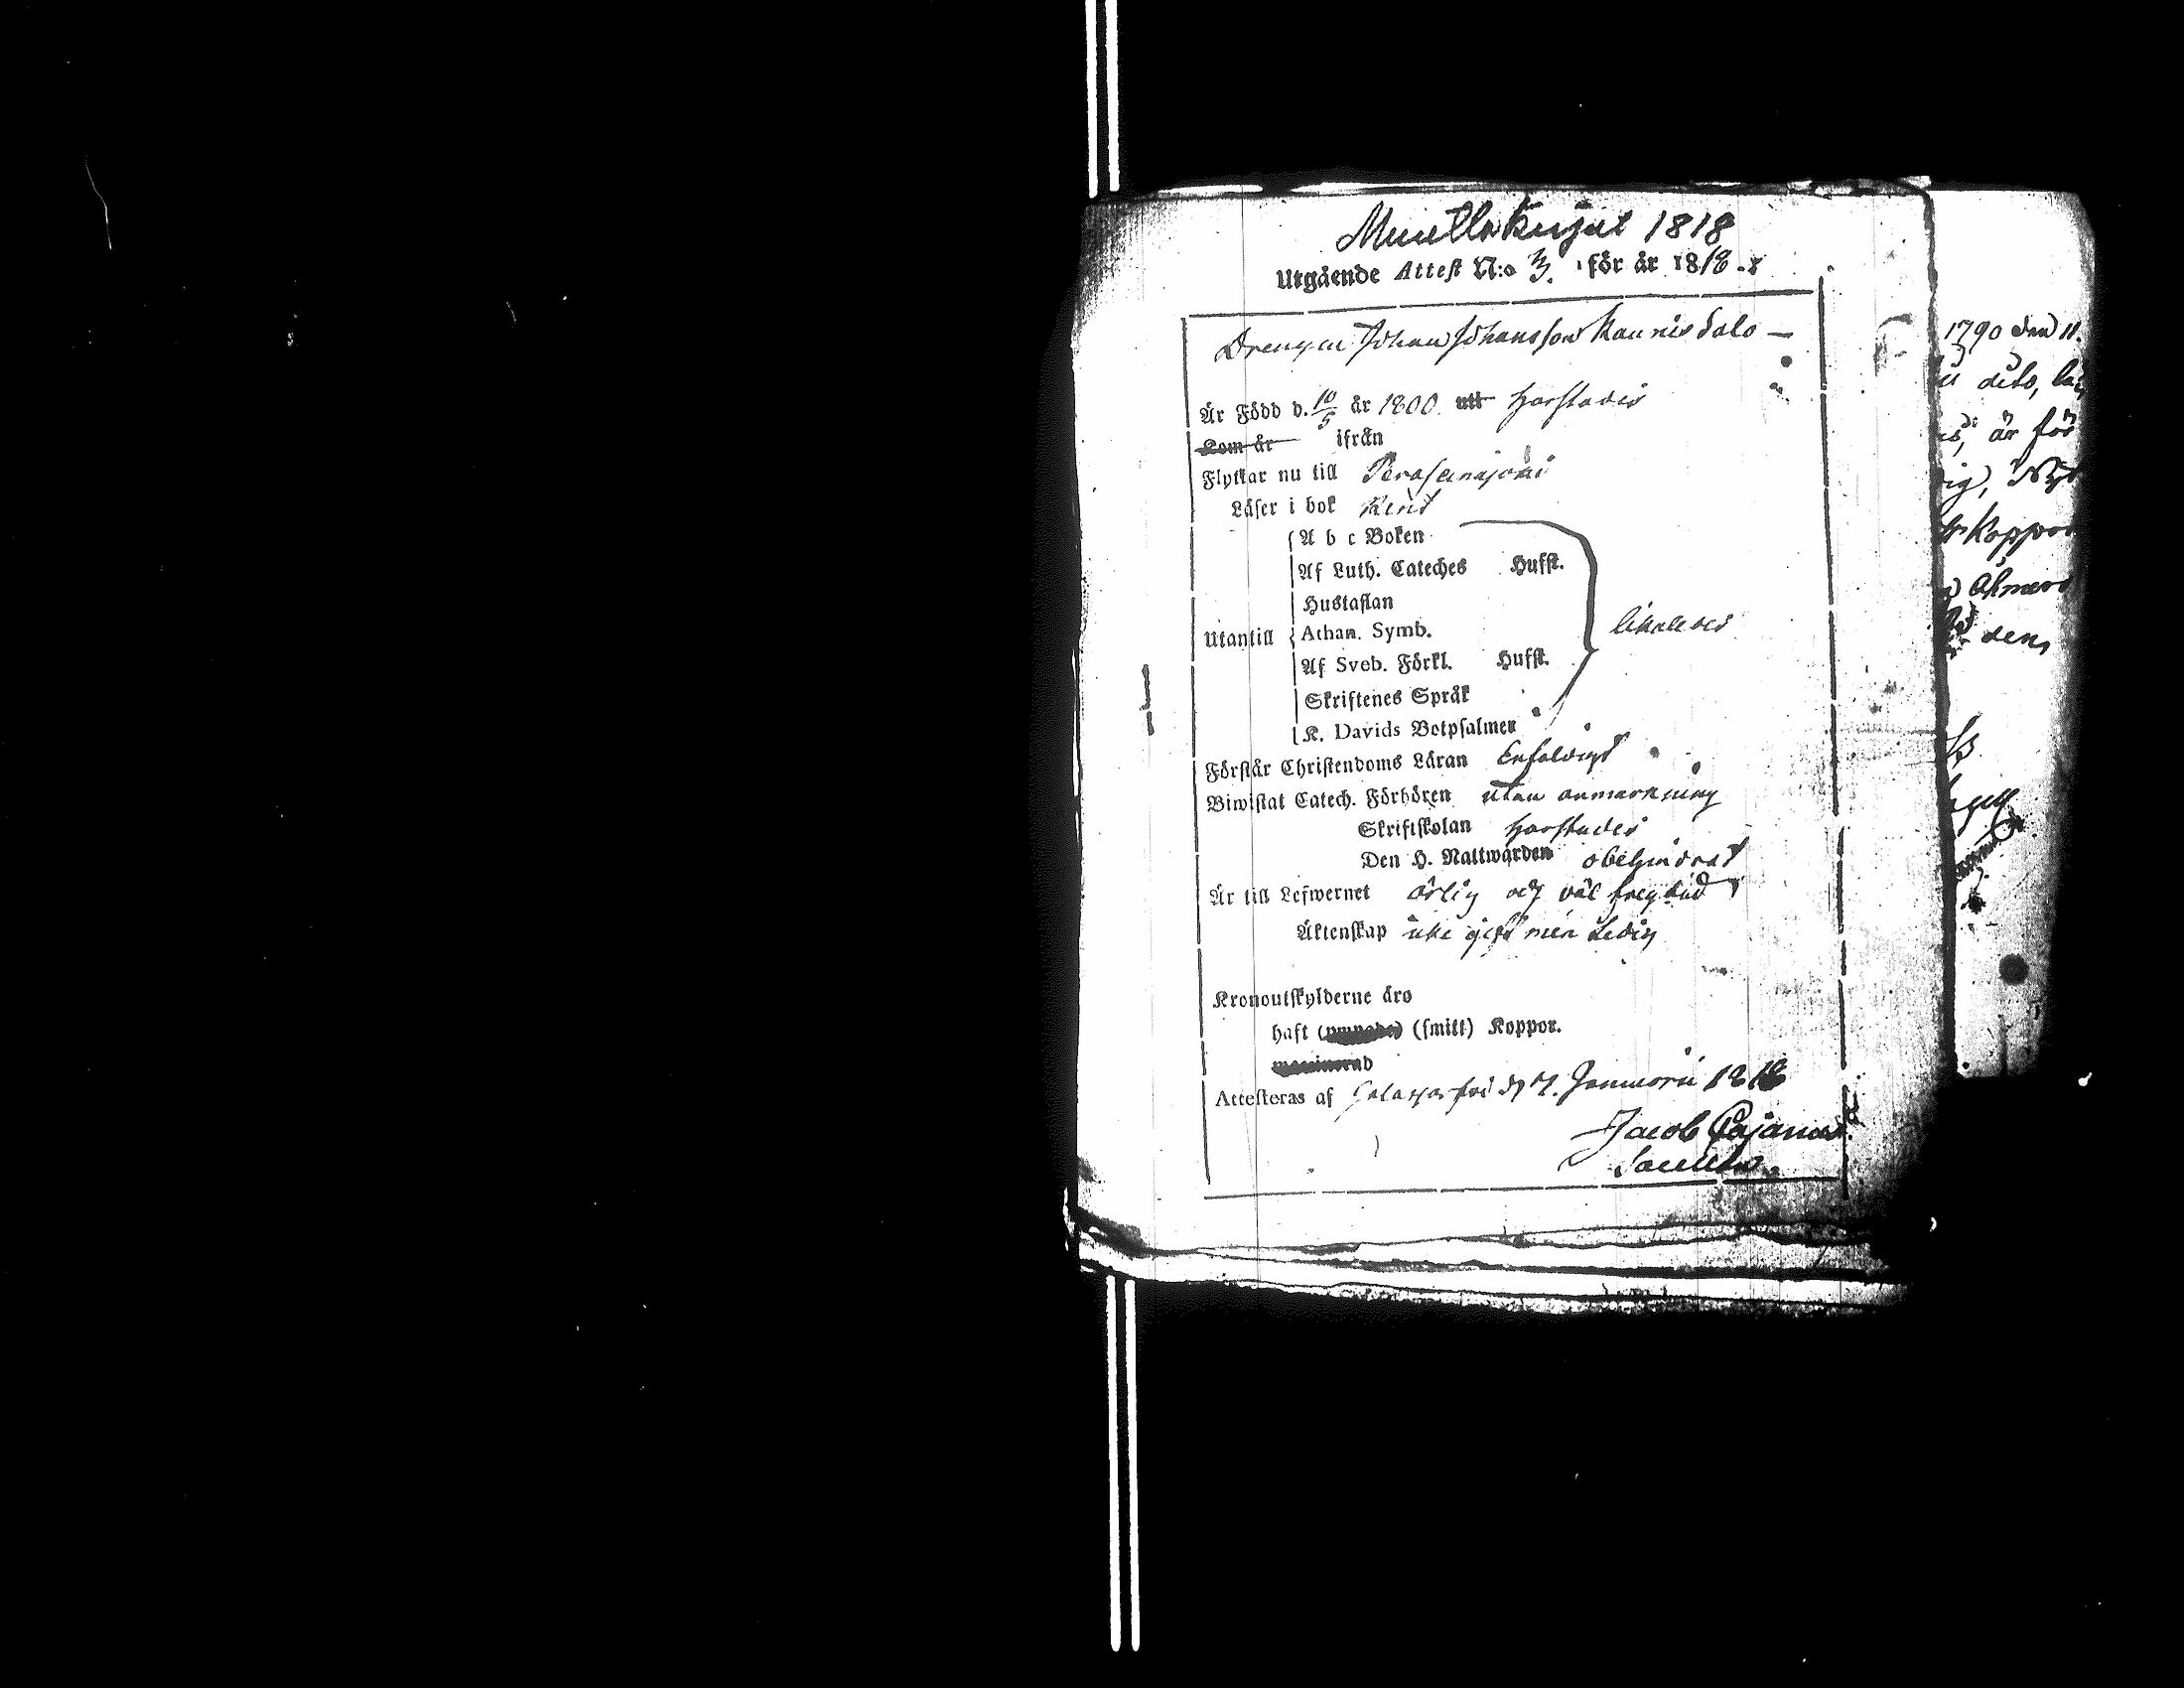 Muuttokirjat 1818
Utgående Attest N:o 3. för år 1818.
Drengen Johan Johansson Kaunis Salo —
Är Född d. 10/5 år 1800 utt härstädes
Kom år ifrån
Flyttar nu till Peraseinäjoki
Läser i bok Rent
A b c Boken
Af Luth. Cateches Hufst.
Hustaflan
Utantill Athan. Symb. likaledes
Af Sveb. Förkl. Hufst.
Skriftenes Språk
K. Davids Botpsalmer
Förstår Christendoms Läran Enfaldigt
Biwistat Catech. Förhören utan anmärkning
Skriftskolan härstädes
Den H. Nattwarden obehindrat
Är till Lefwernet ärlig och väl frejdad
Äktenskap icke gift men Ledig
Kronoutskylderne äro
haft (smitt) Koppor.
Attesteras af d 7. Januarii 1818
Jacob Pajanen
1790 den 11.
dito,
är för
Koppor
den,